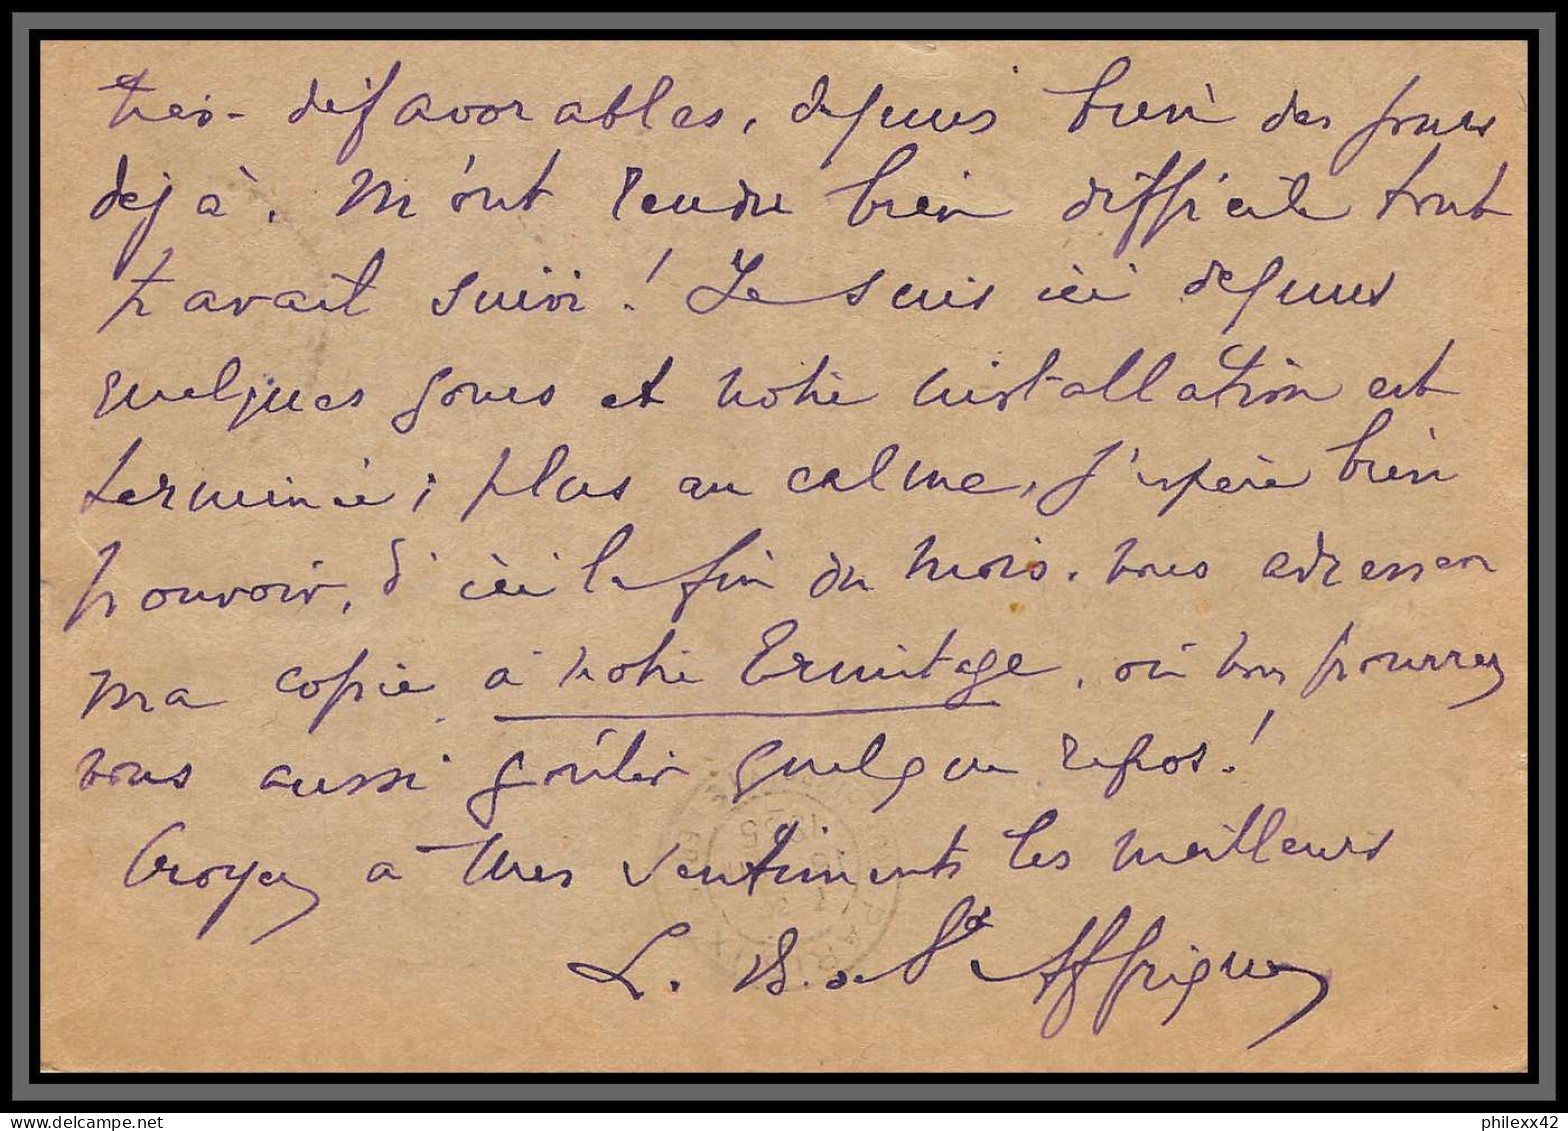 très-défavorables, depuis bien des jours
déjà, m'ont rendu bien difficile tout
travail suivi! Je suis ici depuis
quelques jours et notre installation est
terminée; plus au calme, j'espère bien
pouvoir, d'ici la fin du mois, vous adresser
ma copie à notre Ermitage, où vous pourrez
vous aussi goûter quelque repos!
Croyez à mes sentiments les meilleurs
L. B. de St Affrique
philexx42